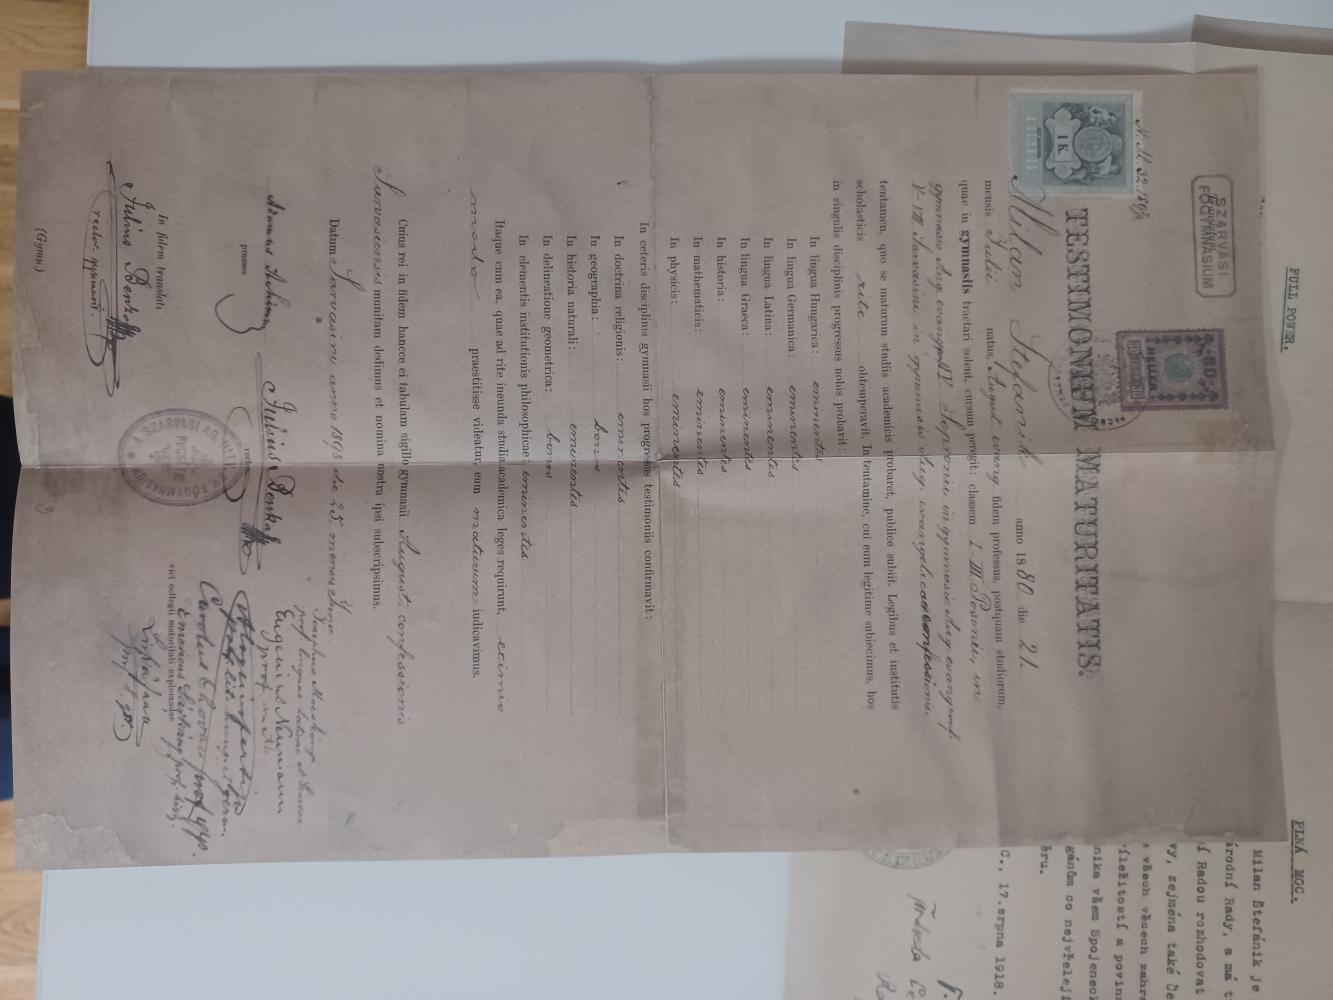 SZARVASI
FŐGYMNASIUM
N. M. 32. 1897/8
80
HELLER
1 K.
TESTIMONIUM MATURITATIS.
Milan Stefanik anno 1880 die 21.
mensis Julii natus, August. evang. fidem professus, postquam studiorum,
quae in gymnasiis tractari solent, cursum peregit: classem I-III Posonii, in
gymnasio Aug. evang. IV Sopronii in gymnasio Aug. evang. conf.
V-VIII Sarvasini in gymnasio Aug. evangelicae confessionis.
tentamen, quo se maturum studiis academicis probaret, publice subiit. Legibus et institutis
scholasticis rite obtemperavit. In tentamine, cui eum legitime subiecimus, hos
in singulis disciplinis progressus nobis probavit:
In lingua Hungarica: eminentes
In lingua Germanica: eminentes
In lingua Latina: eminentes
In lingua Graeca: eminentes
In historia: eminentes
In mathematicis: eminentes
In physicis: eminentes
In ceteris disciplinis gymnasii hos progressus testimoniis confirmavit:
In doctrina religionis: eminentes
In geographia: bonos
In historia naturali: eminentes
In delineatione geometrica: bonos
In elementis institutionis philosophicae: eminentes
Itaque cum ea, quae ad rite ineunda studia academica leges requirunt, eximio
modo praestitisse videatur, eum maturum iudicavimus.
Cuius rei in fidem hancce ei tabulam sigillo gymnasii August. confessionis
Sarvasiensis munitam dedimus et nomina nostra ipsi subscripsimus.
Datum Sarvasini anno 1898 die 25. mensis Juni.
praeses.
Julius Benka
rector.
prof. linguae Latinae et
Eugenius Neumann
prof. math
Carolus Chovan prof. gym.
Emericus prof. hist.
viri collegii maturitati explorandae
prof. gym.
In fidem translati
Julius Benka
rector gymnasii.
A SZARVASI ÁG. HITV. EV. FŐGYMNASIUM
(Gymn.)
FULL POWER.
PLNÁ MOC.
Milan Štefánik je
árodní Rady, a má t
í Radou rozhodovat
vy, zejména také Če
všech věcech zahra
íležitostí a povinn
níka všem Spojenec
gánům co nejvřelejš
ěru.
C., 17.srpna 1918.